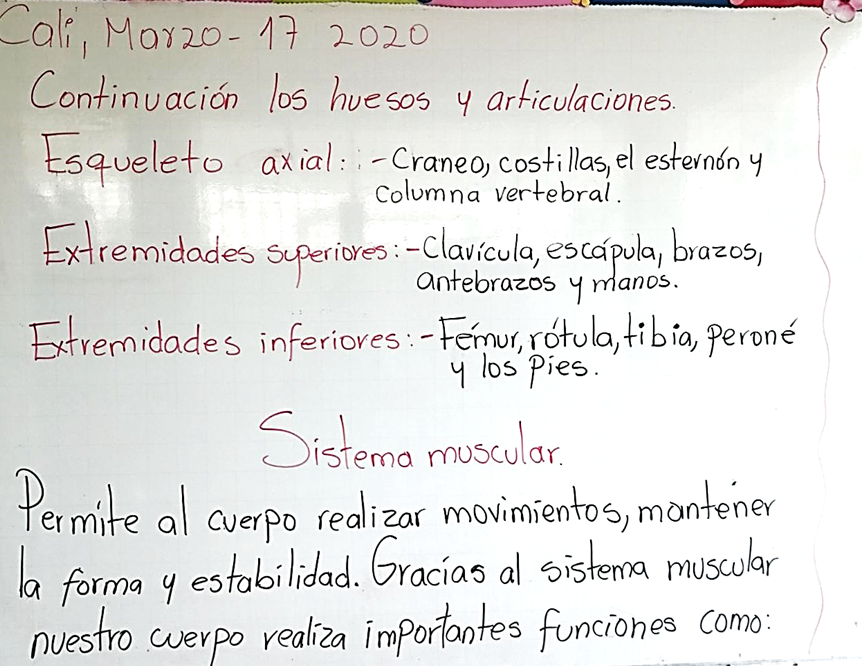 Cali, Marzo - 17 2020
Continuación los huesos y articulaciones.
Esqueleto axial: - Craneo, costillas, el esternón y
columna vertebral.
Extremidades superiores: - Clavícula, escápula, brazos,
antebrazos y manos.
Extremidades inferiores: - Fémur, rótula, tibia, peroné
y los pies.
Sistema muscular.
Permite al cuerpo realizar movimientos, mantener
la forma y estabilidad. Gracias al sistema muscular
nuestro cuerpo realiza importantes funciones como: